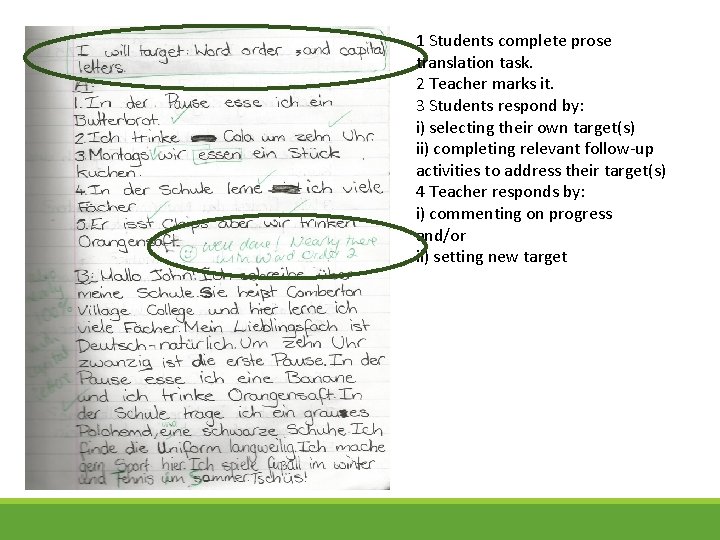 I will target: Word order, and capital
letters.
A:
1. In der Pause esse ich ein
Butterbrot.
2. Ich trinke Cola um zehn Uhr.
3. Montags wir essen ein Stück
kuchen.
4. In der Schule lerne ich viele
Fächer
5. Er isst Chips aber wir trinken
Orangensaft.
Well done! Nearly there
with Word Order 2
B: Hallo John! Ich schreibe über
meine Schule. Sie heißt Comberton
Village College und hier lerne ich
viele Fächer. Mein Lieblingsfach ist
Deutsch-natürlich. Um zehn Uhr
zwanzig ist die erste Pause. In der
Pause esse ich eine Banane
und ich trinke Orangensaft. In
der Schule trage ich ein graues
Polohemd, eine schwarze Schuhe. Ich
finde die Uniform langweilig. Ich mache
gern Sport hier. Ich spiele fußall im winter
und Tennis um Sommer. Tschüs!
1 Students complete prose
translation task.
2 Teacher marks it.
3 Students respond by:
i) selecting their own target(s)
ii) completing relevant follow-up
activities to address their target(s)
4 Teacher responds by:
i) commenting on progress
and/or
ii) setting new target